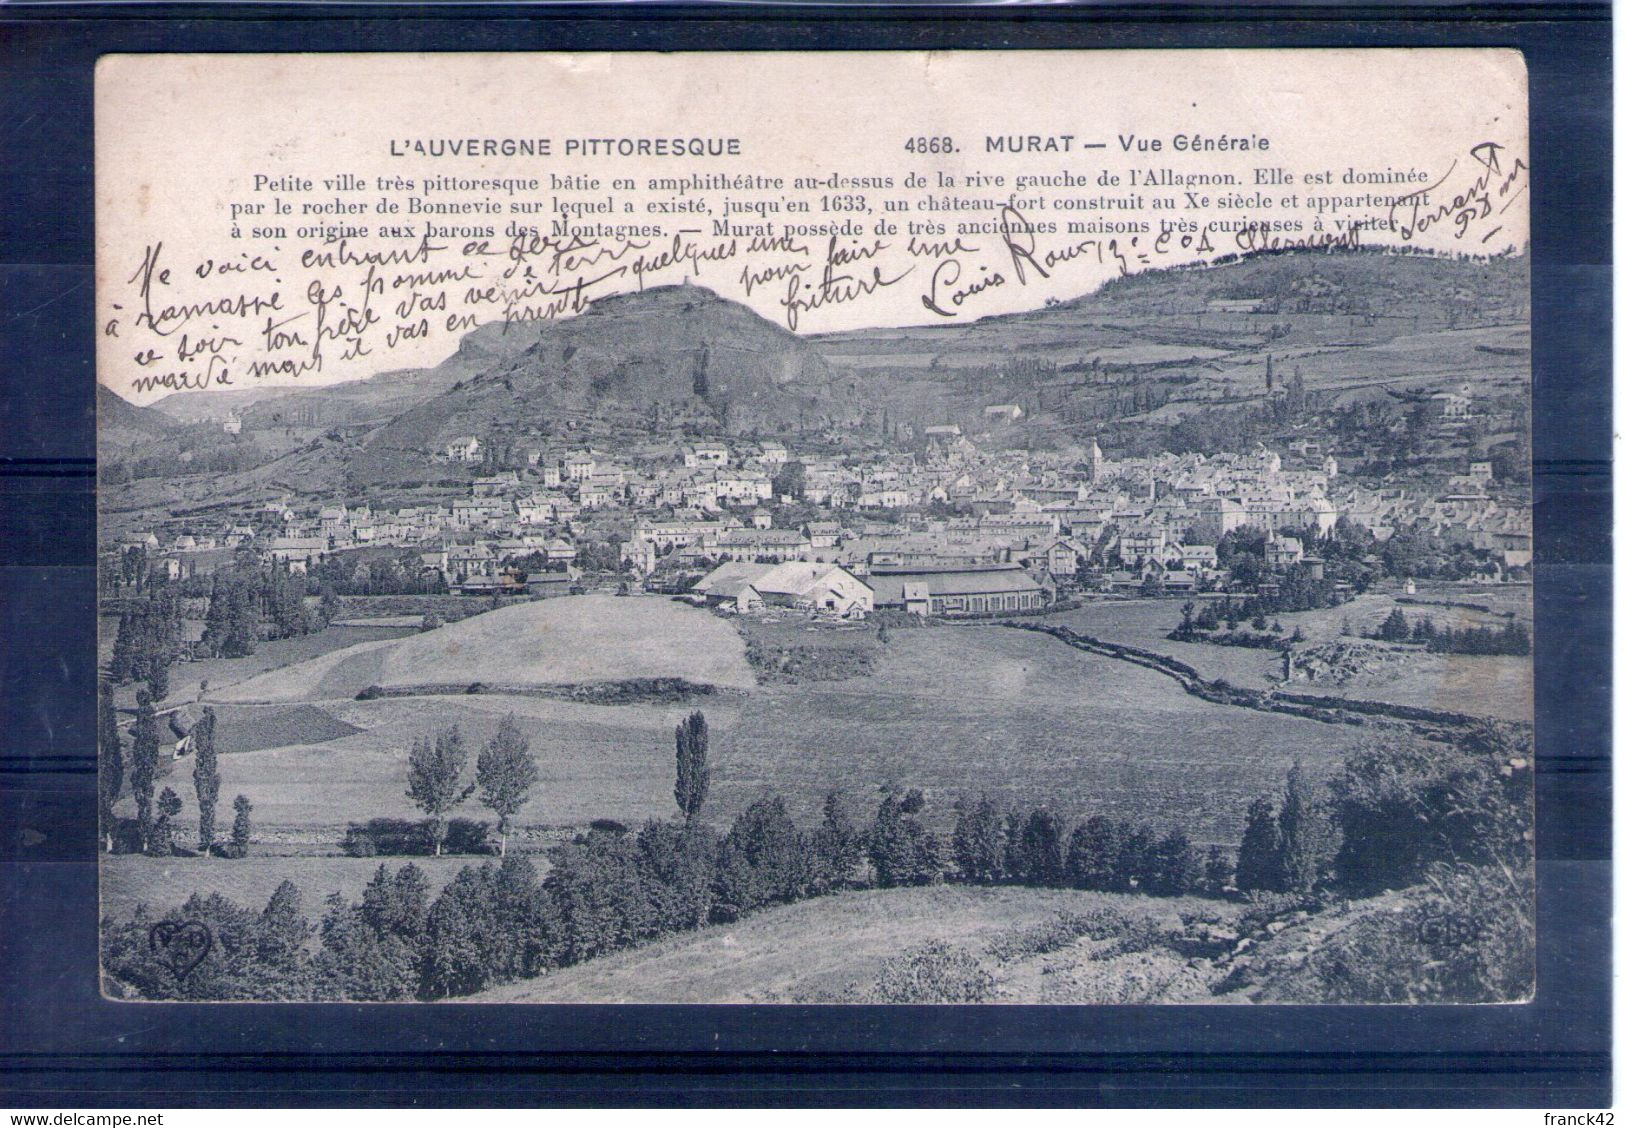 L'AUVERGNE PITTORESQUE
4868. MURAT — Vue Générale
Petite ville très pittoresque bâtie en amphithéâtre au-dessus de la rive gauche de l'Allagnon. Elle est dominée
par le rocher de Bonnevie sur lequel a existé, jusqu'en 1633, un château-fort construit au Xe siècle et appartenant
à son origine aux barons des Montagnes. — Murat possède de très anciennes maisons très curieuses à visiter.
Me voici entrant ce
à ramassé les pomme de terre
ce soir ton père vas venir quelques une
marde mais il vas en prendre
pour faire une
friture
Louis Roux 13e
Clermont Ferrant
P D
ELD
franck42